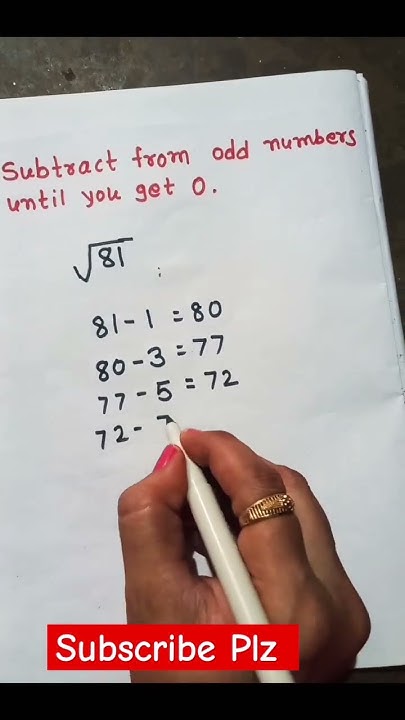 Subtract from odd numbers
until you get 0.
√81 :
81 - 1 = 80
80 - 3 = 77
77 - 5 = 72
72 -
Subscribe Plz